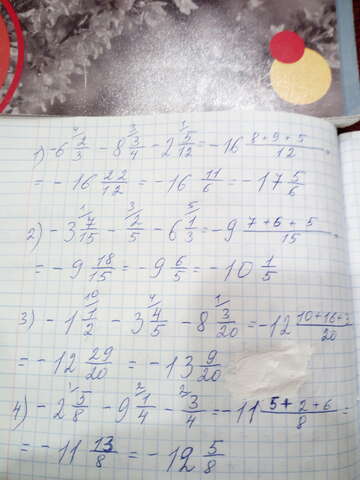 1) -6 2/3 - 8 3/4 - 2 5/12 = -16 8+9+5/12 =
= -16 22/12 = -16 11/6 = -17 5/6
2) -3 7/15 - 2/5 - 6 1/3 = -9 7+6+5/15 =
= -9 18/15 = -9 6/5 = -10 1/5
3) -1 1/2 - 3 4/5 - 8 3/20 = -12 10+16+3/20
= -12 29/20 = -13 9/20
4) -2 5/8 - 9 1/4 - 3/4 = -11 5+2+6/8 =
= -11 13/8 = -12 5/8